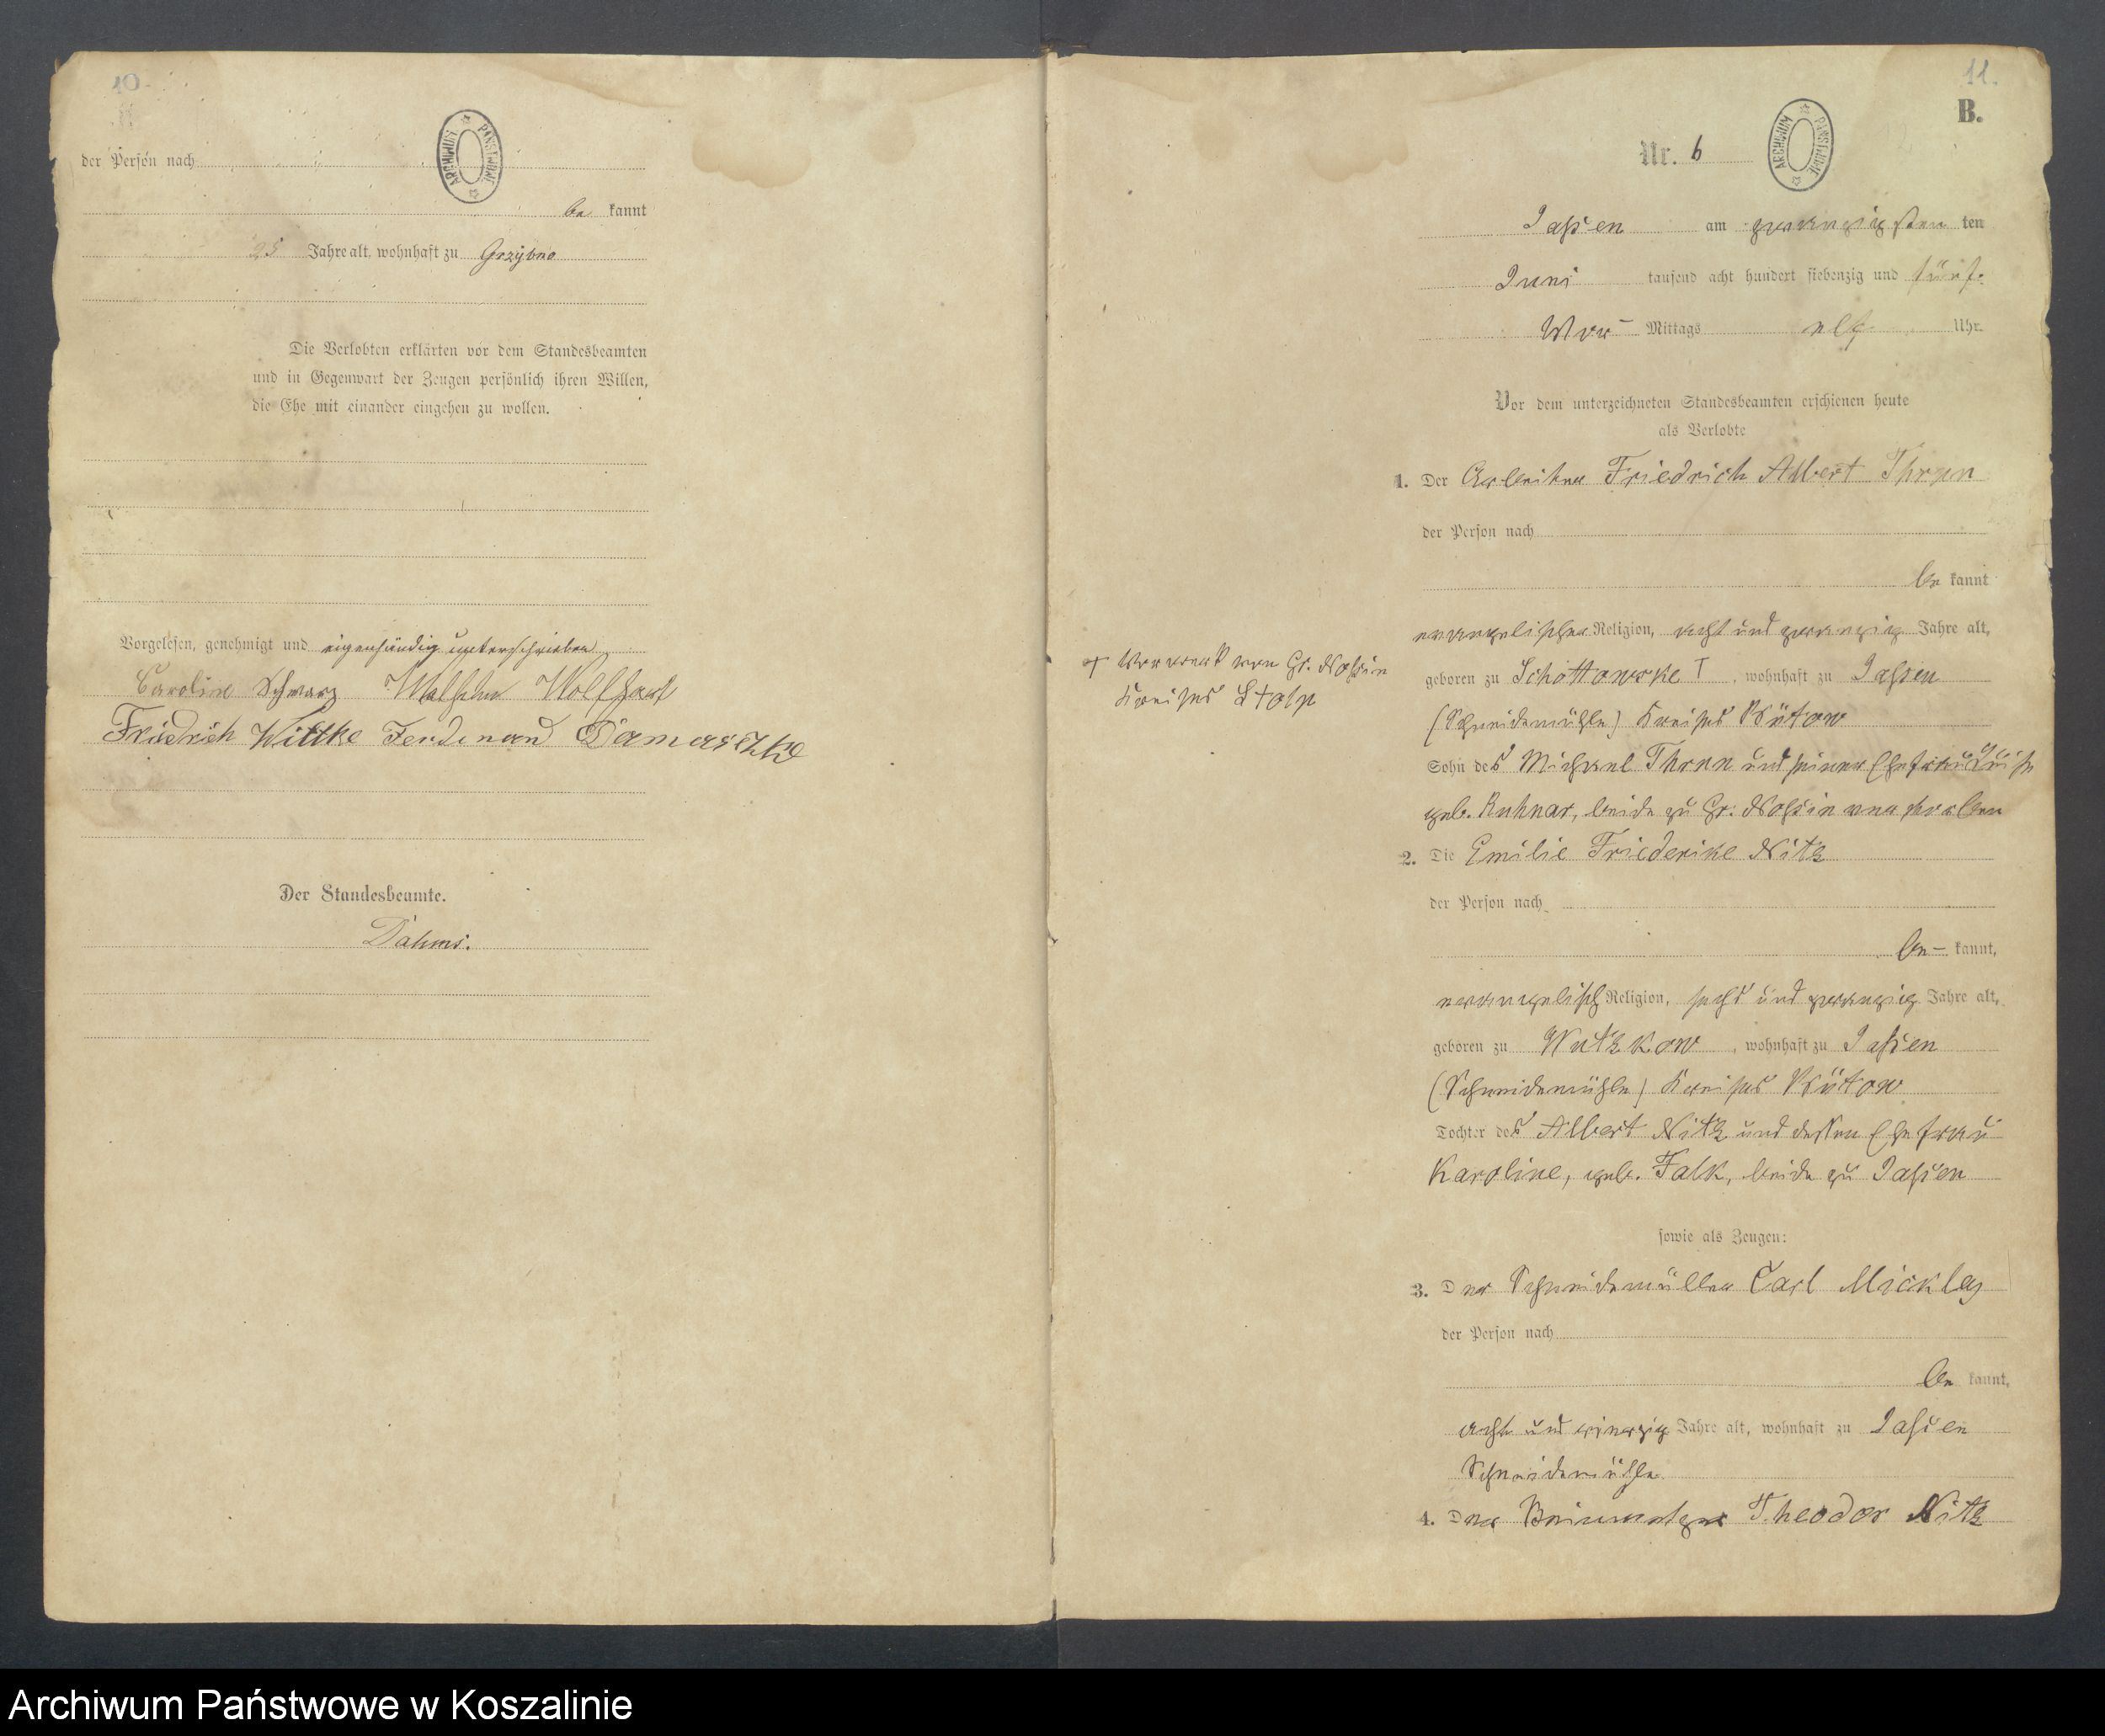 10.
ARCHIWUM PAŃSTWOWE
der Person nach
be kannt
25 Jahre alt, wohnhaft zu Grzybno
Die Verlobten erklärten vor dem Standesbeamten
und in Gegenwart der Zeugen persönlich ihren Willen,
die Ehe mit einander eingehen zu wollen.
Vorgelesen, genehmigt und eigenhändig unterschrieben
Caroline Schwarz Wilhelm
Friedrich Wittke Ferdinand Damaschke
Der Standesbeamte.
Dahms.
11.
B.
Nr. 6
ARCHIWUM PAŃSTWOWE
Jassen am zwanzigsten ten
Juni tausend acht hundert siebenzig und fünf.
Vor- Mittags elf Uhr.
Vor dem unterzeichneten Standesbeamten erschienen heute
als Verlobte
1. Der Arbeiter Friedrich Albert Thrun
der Person nach
be kannt
evangelischer Religion, acht und zwanzig Jahre alt,
+ Vorwerk von Gr. Nossin
Kreises Stolp
geboren zu Schottowske +, wohnhaft zu Jassen
(Schneidemühle) Kreises Bütow
Sohn des Michael Thrun und seiner Ehefrau Luise
geb. Kuhnar, beide zu Gr. Nossin verstorben
2. Die Emilie Friederike Nitz
der Person nach
be- kannt,
evangelisch Religion, sechs und zwanzig Jahre alt,
geboren zu Wutzkow, wohnhaft zu Jassen
(Schneidemühle) Kreises Bütow
Tochter des Albert Nitz und dessen Ehefrau
Karoline, geb. Falk, beide zu Jassen
sowie als Zeugen:
3. Der Schneidemüller Carl Mickley
der Person nach
be kannt,
acht und vierzig Jahre alt, wohnhaft zu Jassen
Schneidemühle.
4. Der Theodor Nitz
Archiwum Państwowe w Koszalinie